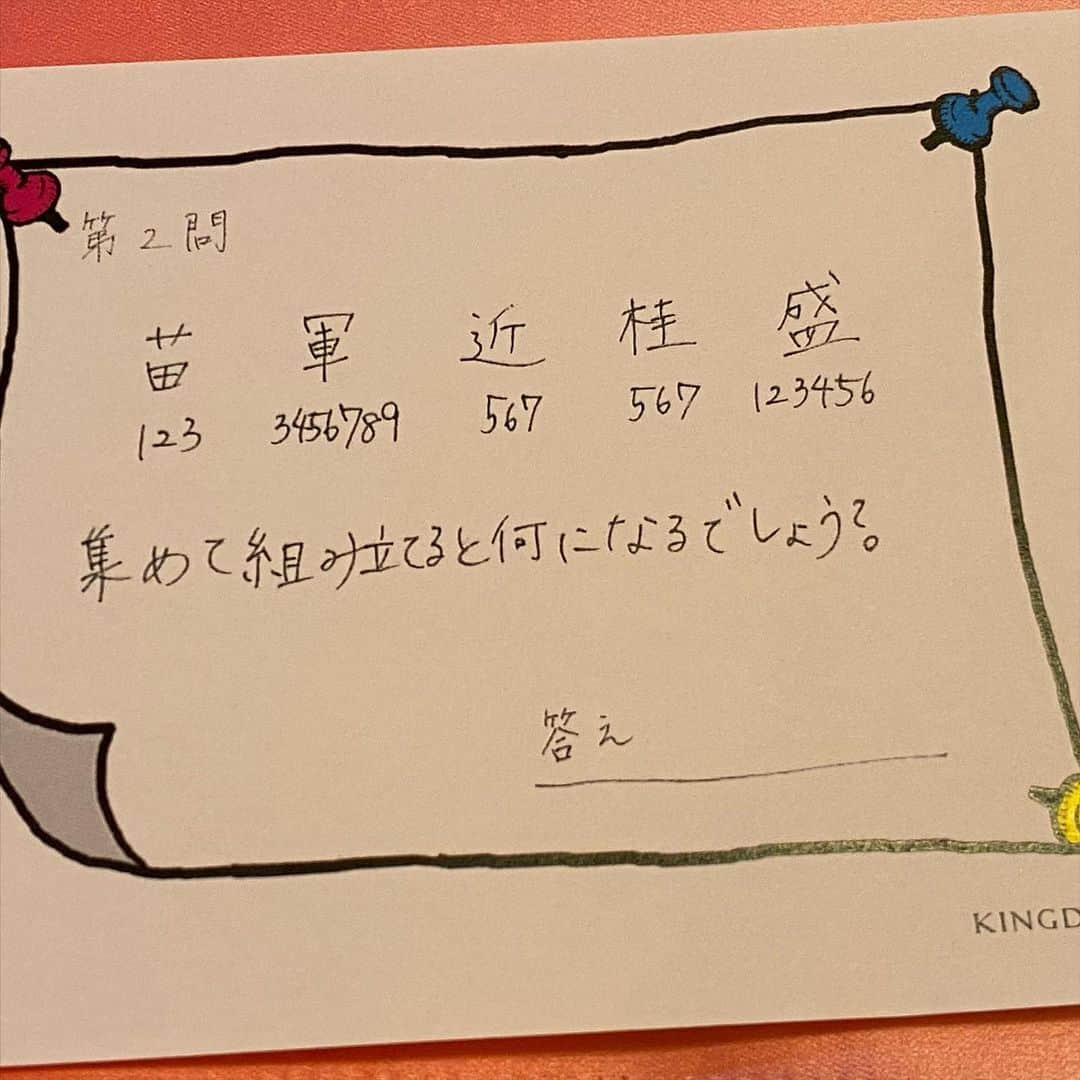 第2問
苗 軍 近 桂 盛
123 3456789 567 567 123456
集めて組み立てると何になるでしょう?
答え
KINGD